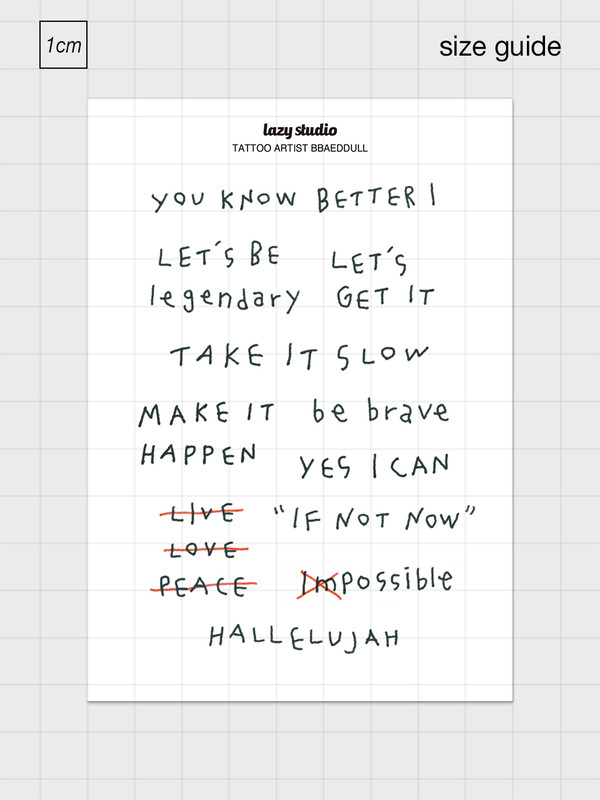 1cm
size guide
lazy studio
TATTOO ARTIST BBAEDDULL
YOU KNOW BETTER I
LET'S BE
legendary
LET'S
GET IT
TAKE IT SLOW
MAKE IT
HAPPEN
be brave
YES I CAN
LIVE
LOVE
PEACE
"IF NOT NOW"
Impossible
HALLELUJAH